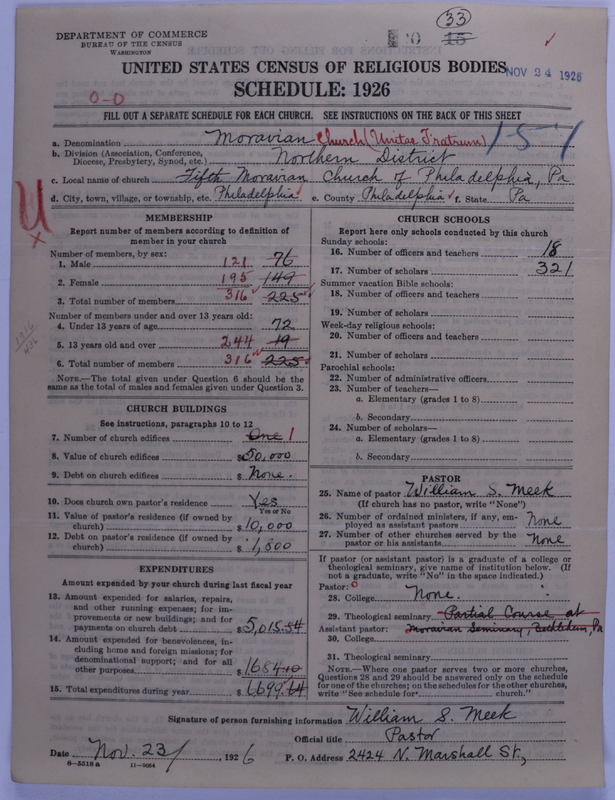 33
10 15
DEPARTMENT OF COMMERCE
BUREAU OF THE CENSUS
WASHINGTON
UNITED STATES CENSUS OF RELIGIOUS BODIES
NOV 24 1926
SCHEDULE: 1926
0-0
FILL OUT A SEPARATE SCHEDULE FOR EACH CHURCH. SEE INSTRUCTIONS ON THE BACK OF THIS SHEET
a. Denomination Moravian Church (Unitas Fratrum) 151
b. Division (Association, Conference, Diocese, Presbytery, Synod, etc.) Northern District
c. Local name of church Fifth Moravian Church of Philadelphia, Pa
d. City, town, village, or township, etc. Philadelphia e. County Philadelphia f. State Pa
MEMBERSHIP
Report number of members according to definition of
member in your church
Number of members, by sex:
1. Male 121 76
2. Female 195 149
3. Total number of members 316 225
Number of members under and over 13 years old:
4. Under 13 years of age 72
5. 13 years old and over 244 19
6. Total number of members 316 225
NOTE.—The total given under Question 6 should be the
same as the total of males and females given under Question 3.
CHURCH BUILDINGS
See instructions, paragraphs 10 to 12
7. Number of church edifices One 1
8. Value of church edifices $50,000
9. Debt on church edifices $ None.
10. Does church own pastor's residence Yes
Yes or No
11. Value of pastor's residence (if owned by
church) $10,000
12. Debt on pastor's residence (if owned by
church) $1,800
EXPENDITURES
Amount expended by your church during last fiscal year
13. Amount expended for salaries, repairs,
and other running expenses; for im-
provements or new buildings; and for
payments on church debt $5,015.54
14. Amount expended for benevolences, in-
cluding home and foreign missions; for
denominational support; and for all
other purposes $1684.10
15. Total expenditures during year $6,699.64
CHURCH SCHOOLS
Report here only schools conducted by this church
Sunday schools:
16. Number of officers and teachers 18
17. Number of scholars 321
Summer vacation Bible schools:
18. Number of officers and teachers
19. Number of scholars
Week-day religious schools:
20. Number of officers and teachers
21. Number of scholars
Parochial schools:
22. Number of administrative officers
23. Number of teachers—
a. Elementary (grades 1 to 8)
b. Secondary
24. Number of scholars—
a. Elementary (grades 1 to 8)
b. Secondary
PASTOR
25. Name of pastor William S. Meek
(If church has no pastor, write "None")
26. Number of ordained ministers, if any, em-
ployed as assistant pastors None
27. Number of other churches served by the
pastor or his assistants None
If pastor (or assistant pastor) is a graduate of a college or
theological seminary, give name of institution below. (If
not a graduate, write "No" in the space indicated.)
Pastor: 0
28. College None.
29. Theological seminary Partial Course at
Assistant pastor: Moravian Seminary, Bethlehem, Pa
30. College
31. Theological seminary
NOTE.—Where one pastor serves two or more churches,
Questions 28 and 29 should be answered only on the schedule
for one of the churches; on the schedules for the other churches,
write "See schedule for church."
Signature of person furnishing information William S. Meek
Official title Pastor
Date Nov. 23, 1926 P. O. Address 2424 N. Marshall St.,
8-5518 a 11-9664